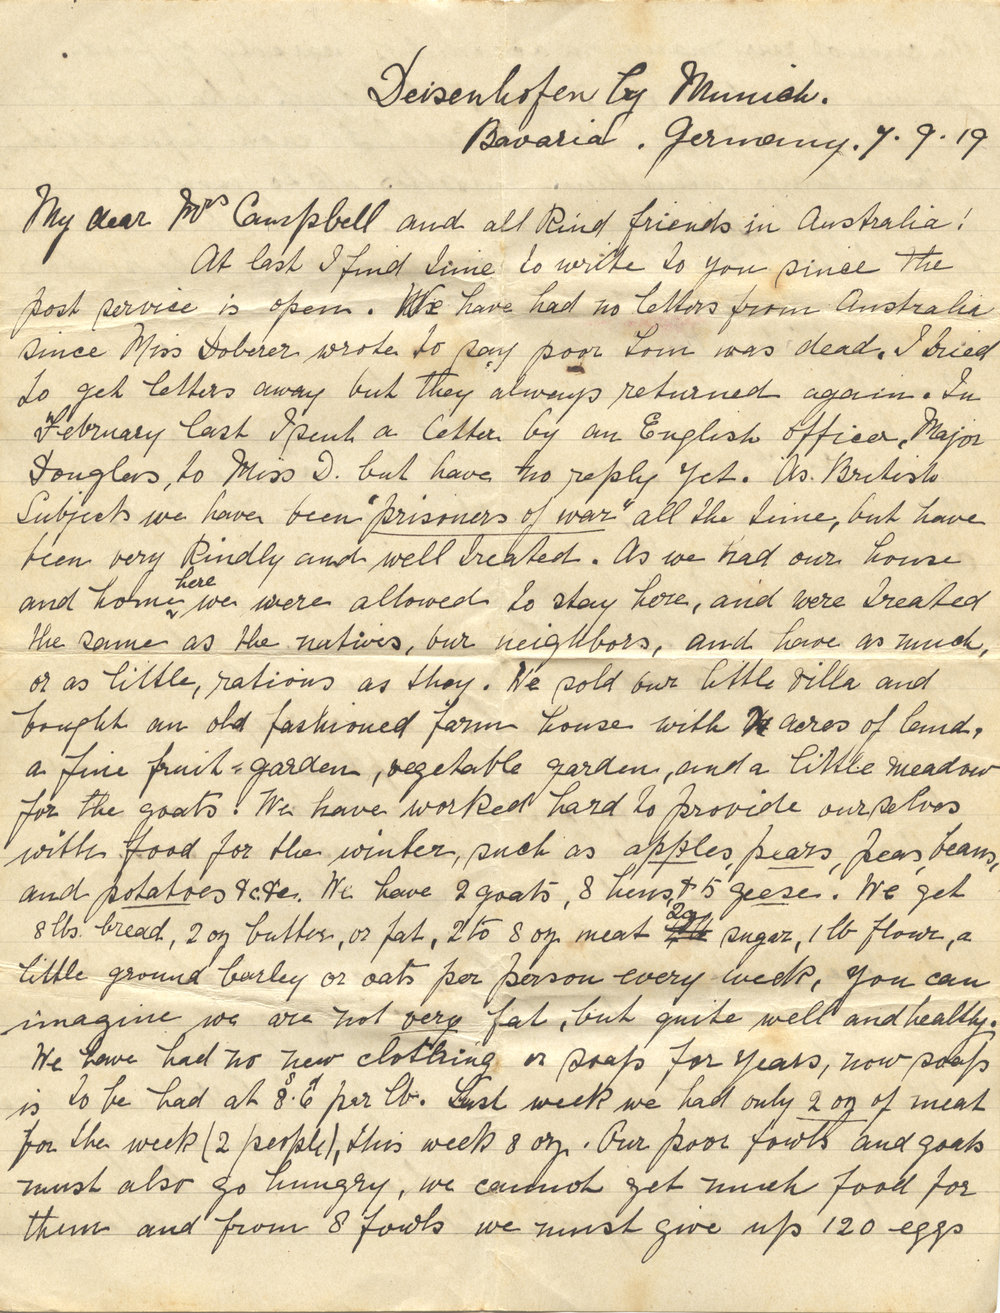 Deisenhofen by Munich.
Bavaria. Germany. 7. 9. 19
My dear Mrs Campbell and all kind friends in Australia!
At last I find time to write to you since the
post service is open. We have had no letters from Australia
since Miss Doberer wrote to say poor Tom was dead. I tried
to get letters away but they always returned again. In
February last I sent a letter by an English officer, Major
Douglas, to Miss D. but have no reply yet. As British
Subjects we have been "prisoners of war" all the time, but have
been very kindly and well treated. As we had our house
and home here we were allowed to stay here, and were treated
the same as the natives, our neighbors, and have as much,
or as little, rations as they. We sold our little villa and
bought an old fashioned farm house with acres of land.
a fine fruit-garden, vegetable garden, and a little meadow
for the goats. We have worked hard to provide ourselves
with food for the winter, such as apples, pears, peas, beans,
and potatoes &c.&c. We have 2 goats, 8 hens & 5 geese. We get
8 lbs bread, 2 oz butter, or fat, 2 to 8 oz meat sugar, 1 lb flour, a
little ground barley or oats per person every week, you can
imagine we are not very fat, but quite well and healthy.
We have had no new clothing or soap for years, now soap
is to be had at 8s. 6d per lb. Last week we had only 2 oz of meat
for the week (2 people), this week 8 oz. Our poor fowls and goats
must also go hungry, we cannot get much food for
them and from 8 fowls we must give up 120 eggs